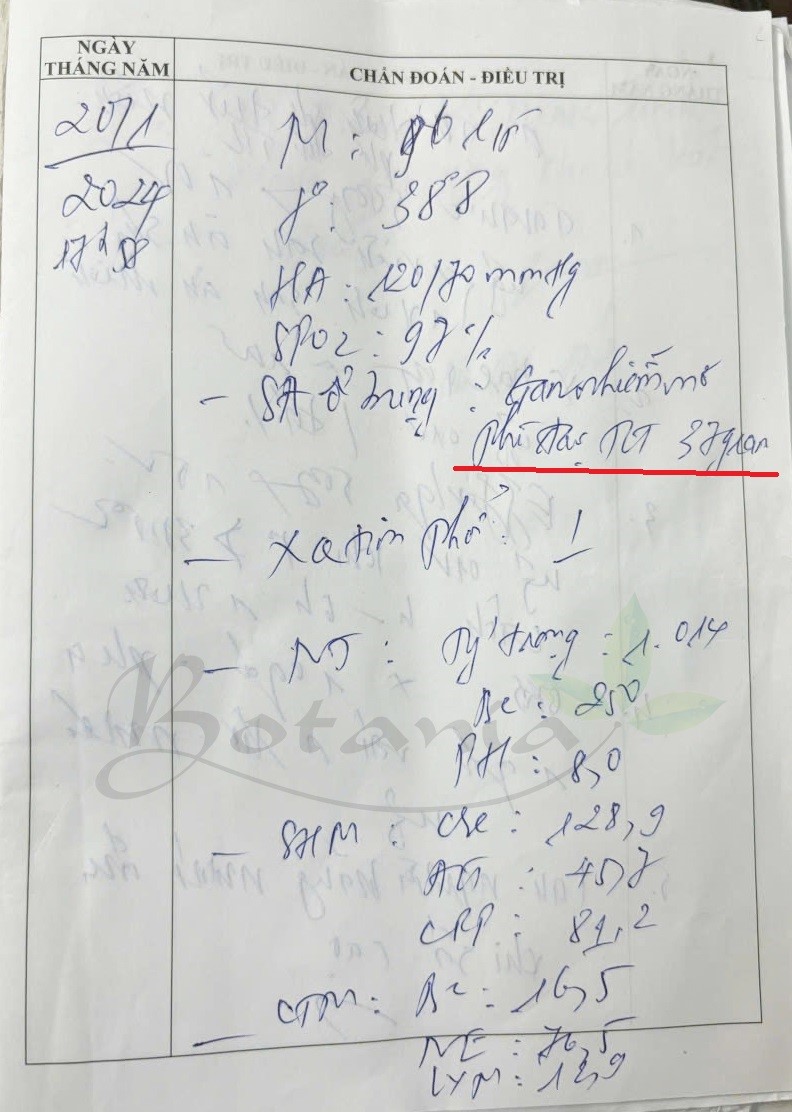 NGÀY
THÁNG NĂM
CHẨN ĐOÁN - ĐIỀU TRỊ
20/1
2024
17h58
M: 96 l/p
t°: 38°8
HA: 120/70 mmHg
SPO2: 97%
- SA ổ bụng: Gan nhiễm mỡ
Phì đại TLT 37gram
- XQ tim phổi:
- NT: Tỷ trọng: 1.014
BC: 250
PH: 8,0
- SHM: Cre: 128,9
45,7
CRP: 81,2
- CTM: BC: 16,5
NE: 76,5
LYM: 12,9
Botania